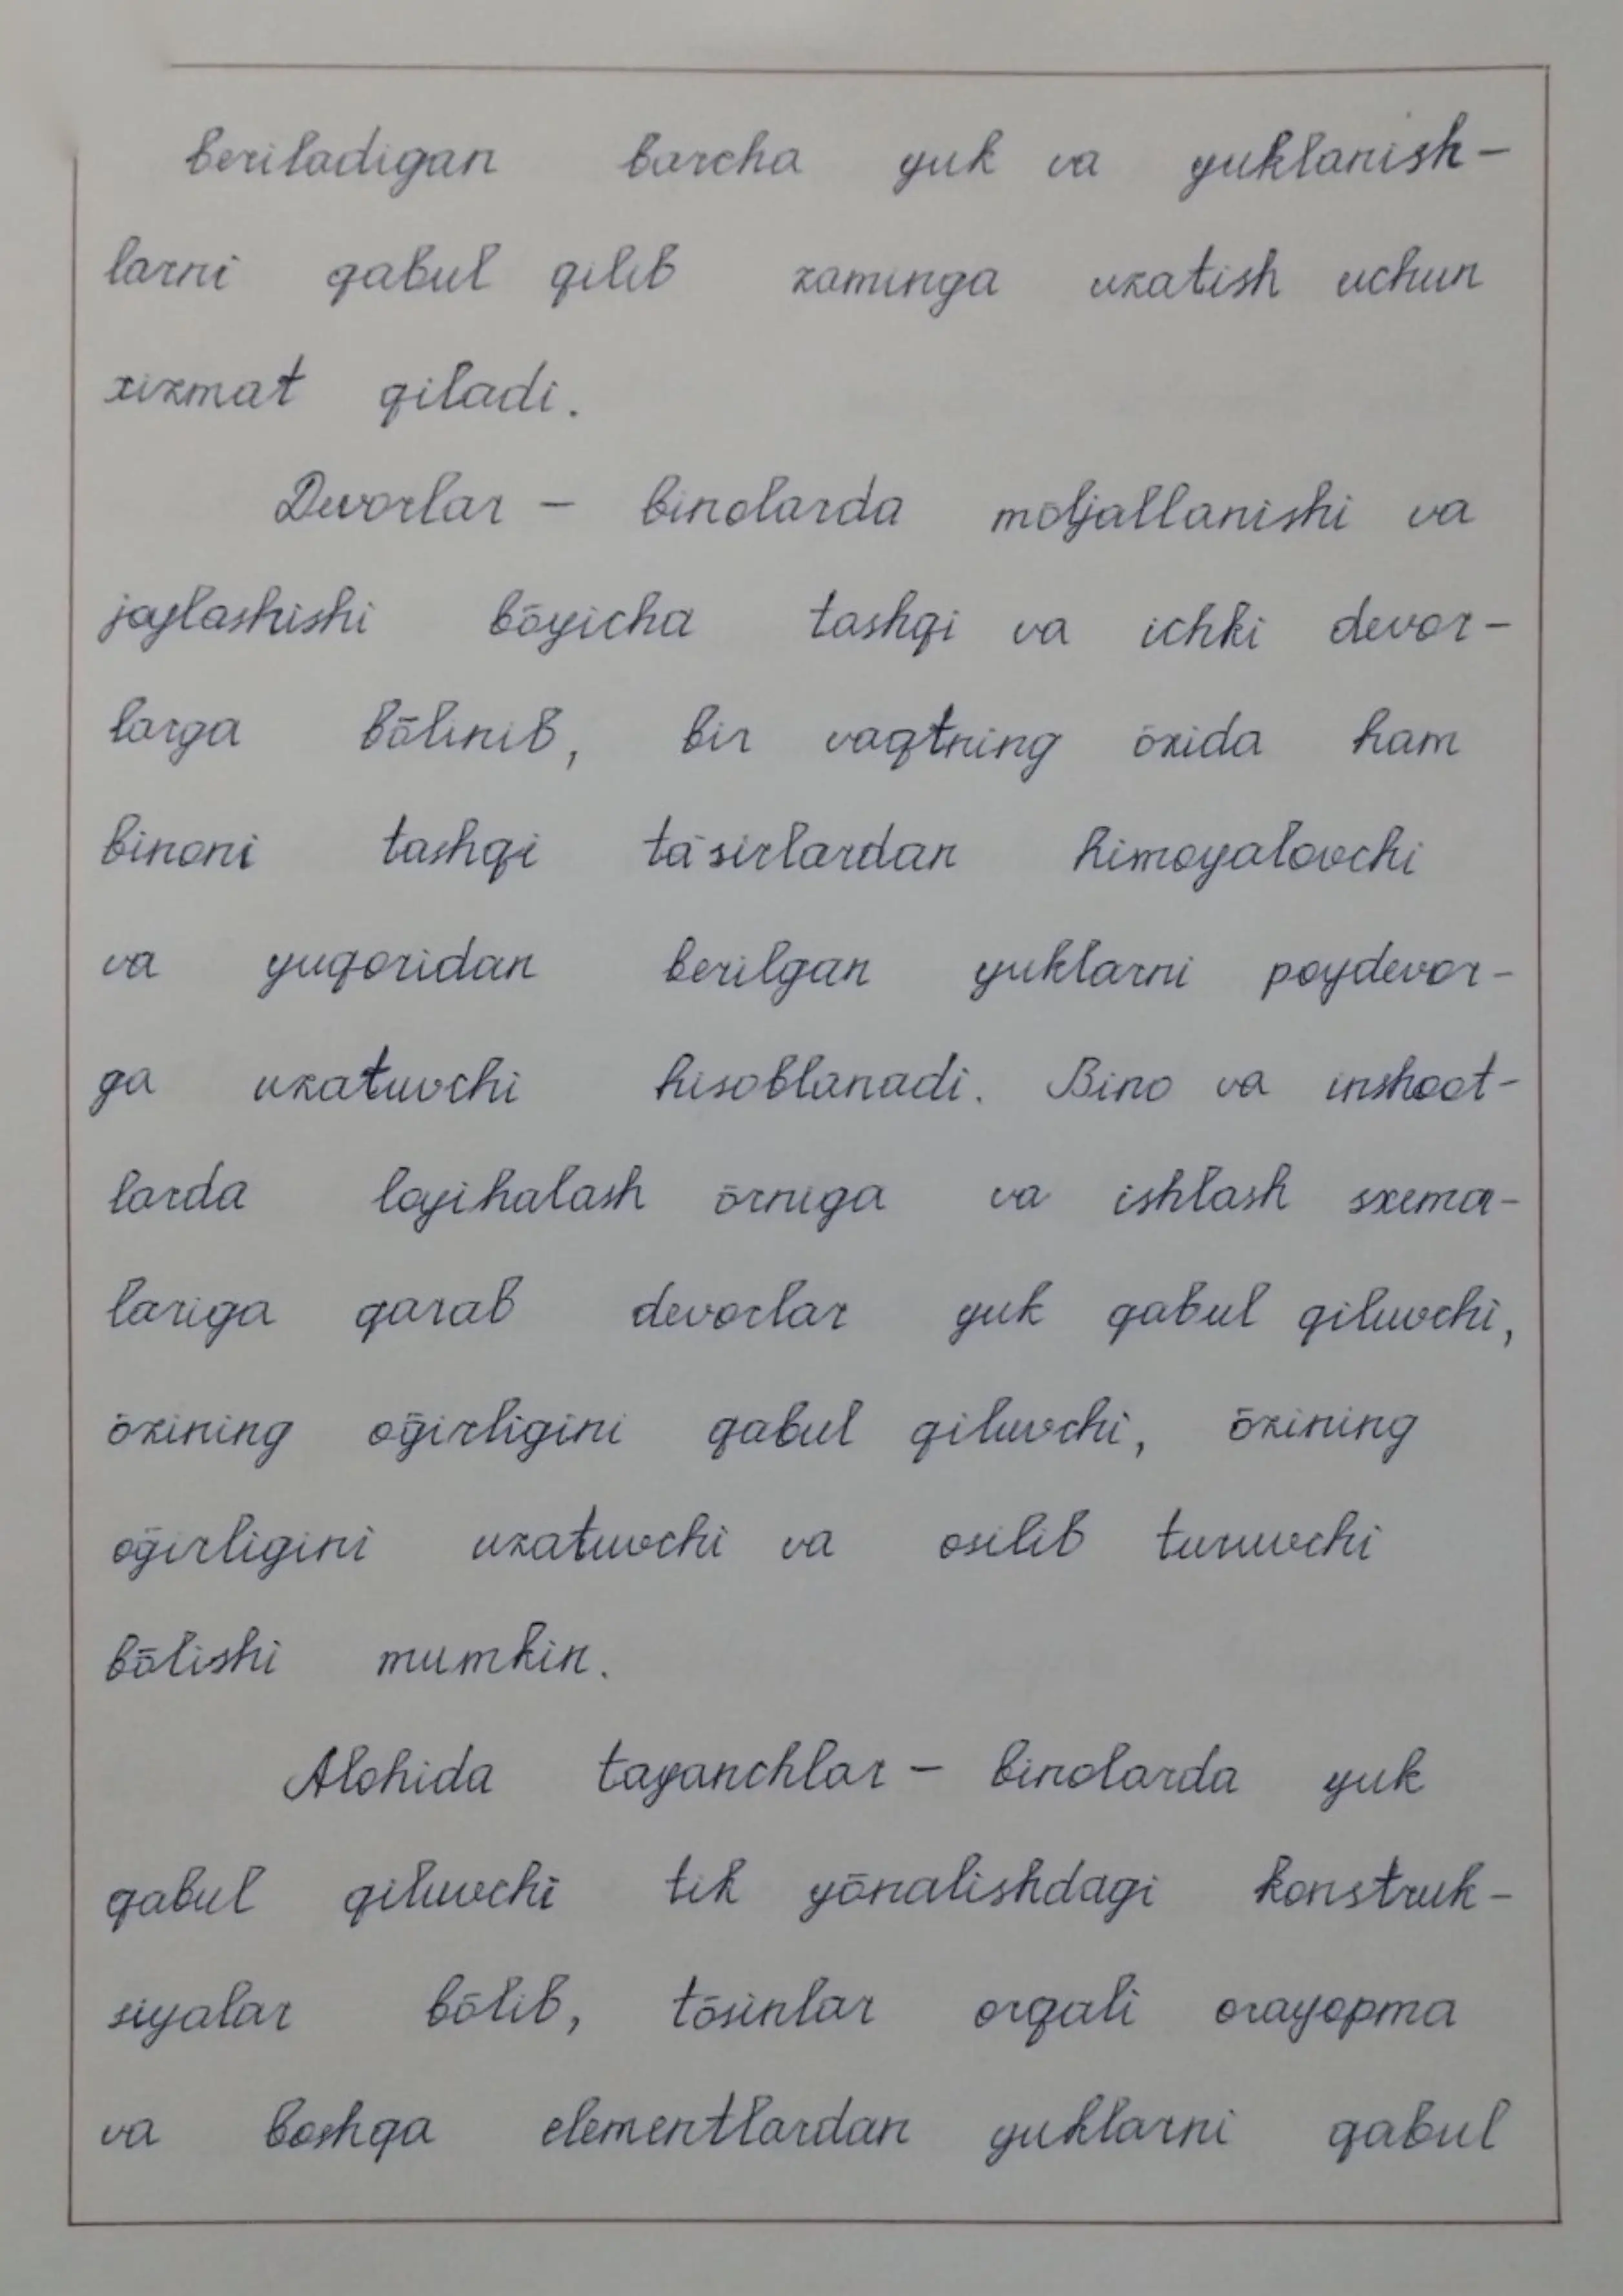 beriladigan barcha yuk va yuklanish-
larni qabul qilib zaminga uzatish uchun
xizmat qiladi.
Devorlar - binolarda mōljallanishi va
joylashishi bōyicha tashqi va ichki devor-
larga bōlinib, bir vaqtning ōzida ham
binoni tashqi ta'sirlardan himoyalovchi
va yuqoridan berilgan yuklarni poydevor-
ga uzatuvchi hisoblanadi. Bino va inshoot-
larda loyihalash ōrniga va ishlash sxema-
lariga qarab devorlar yuk qabul qiluvchi,
ōzining oḡirligini qabul qiluvchi, ōzining
oḡirligini uzatuvchi va osilib turuvchi
bōlishi mumkin.
Alohida tayanchlar - binolarda yuk
qabul qiluvchi tik yōnalishdagi konstruk-
siyalar bōlib, tōsinlar orqali orayopma
va boshqa elementlardan yuklarni qabul